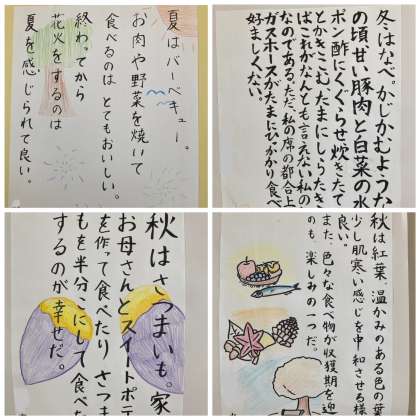 夏はバーベキュー。
お肉や野菜を焼いて
食べるのは とてもおいしい。
終わってから
花火をするのは
夏を感じられて良い。
冬はなべ。かじかむような
の頃、甘い豚肉と白菜の水
ポン酢にくぐらせ炊きたて
とかきこむ、たまにしらたき
はこれがなんとも言えない私の
なのである。ただ、私の席の都合上
ガスホースがたまにひっかかり食べ
好ましくない。
秋はさつまいも。家
お母さんとスイトポテ
を作って食べたり さつま
もを半分こにして食べた
するのが 幸せだ。
秋は紅葉、温かみのある色の葉
少し肌寒い感じを中和させる様
良い。
また、色々な食べ物が収穫期を迎
のも、楽しみの一つだ。